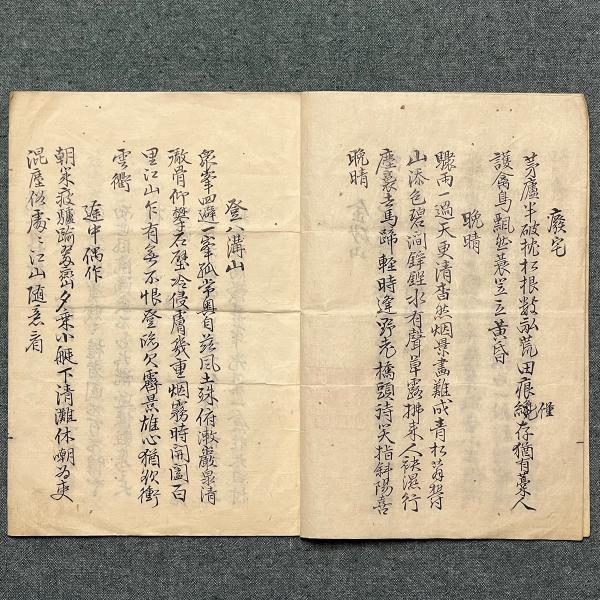 廃宅
茅廬半破枕松根数畝荒田痕僅存猶有藁人
護禽鳥飄然蓑笠立黄昏
晩晴
驟雨一過天更清杳然烟景畫難成青松
山添色碧澗鏗鏗水有聲草露拂来人袂湿行
塵裹去馬蹄軽時逢野老橋頭話笑指斜陽喜
晩晴
登八溝山
衆峯四避一峯孤常奥自茲風土殊俯漱巖泉清
徹骨仰攀石壁冷侵膚幾重烟霧時開闔百
里江山乍有無不恨登臨欠霽景雄心猶欲衝
雲衢
途中偶作
朝策疲驢踰峯巒夕乗小艇下清灘休嘲为吏
混塵俗處々江山随意看